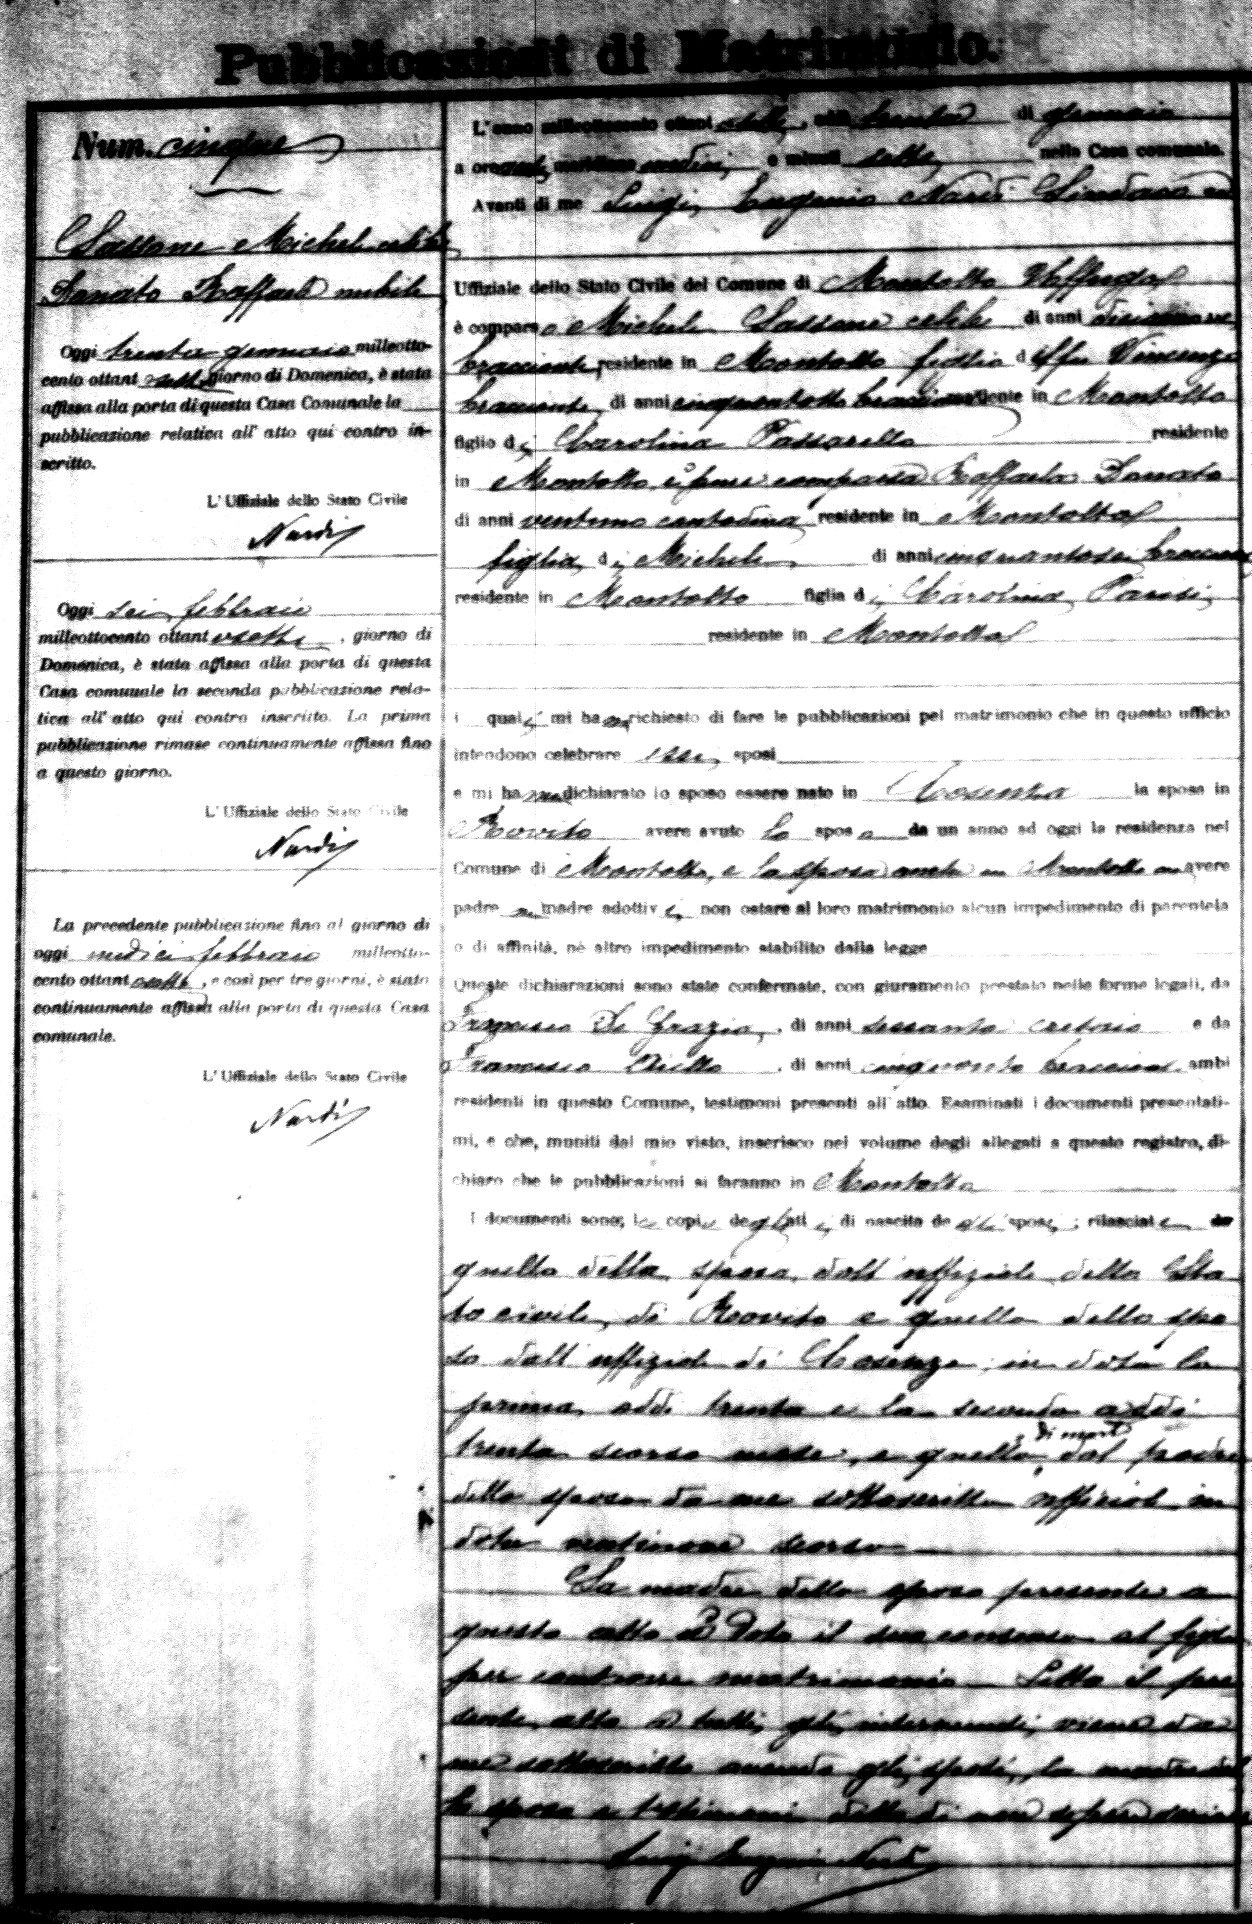 Pubblicazioni di Matrimonio.
Num. cinque
Sassone Michele celibe
Danato Raffaela nubile
Oggi trenta gennaio milleotto-
cento ottantasette giorno di Domenica, è stata
affissa alla porta di questa Casa Comunale la
pubblicazione relativa all' atto qui contro in-
scritto.
L' Uffiziale dello Stato Civile
Nardi
Oggi sei febbraio
milleottocento ottantasette, giorno di
Domenica, è stata affissa alla porta di questa
Casa comunale la seconda pubblicazione rela-
tica all' atto qui contro inscritto. La prima
pubblicazione rimase continuamente affissa fino
a questo giorno.
L' Uffiziale dello Stato Civile
Nardi
La precedente pubblicazione fino al giorno di
oggi undici febbraio milleotto-
cento ottantasette, e così per tre giorni, è stata
continuamente affissa alla porta di questa Casa
comunale.
L' Uffiziale dello Stato Civile
Nardi
L'anno milleottocento ottantasette, addì trenta di gennaio
a ore meridiane e minuti sette, nella Casa comunale.
Avanti di me Luigi Eugenio Nardi Sindaco ed
Uffiziale dello Stato Civile del Comune di Montalto Uffugo
è comparso Michele Sassone celibe di anni diciannove
bracciante, residente in Montalto figlio del fu Vincenzo
bracciante, di anni residente in Montalto
figlio di Carolina Passarella residente
in Montalto, è pure comparsa Raffaela Danato
di anni ventuno contadina residente in Montalto
figlia di Michele di anni cinquantasei bracciante
residente in Montalto figlia di Carolina Parisi
residente in Montalto
i quali mi hanno richiesto di fare le pubblicazioni pel matrimonio che in questo ufficio
intendono celebrare essi sposi
e mi hanno dichiarato lo sposo essere nato in Cosenza la sposa in
Rovito avere avuto lo sposo da un anno ad oggi la residenza nel
Comune di Montalto, e la sposa anche in Montalto avere
padre madre adottivi, non ostare al loro matrimonio alcun impedimento di parentela
o di affinità, nè altro impedimento stabilito dalla legge
Queste dichiarazioni sono state confermate, con giuramento prestato nelle forme legali, da
Francesco De Grazia, di anni sessanta cretaio e da
Francesco Aiello, di anni cinquanta bracciante ambi
residenti in questo Comune, testimoni presenti all' atto. Esaminati i documenti presentati-
mi, e che, muniti dal mio visto, inserisco nel volume degli allegati a questo registro, di-
chiaro che le pubblicazioni si faranno in Montalto
I documenti sono; le copie degli atti di nascita degli sposi; rilasciate
quella della sposa dall' uffiziale dello Sta
to civile di Rovito e quella dello spo
so dall' uffiziale di Cosenza in data la
prima addì trenta e la seconda addì
trenta scorso mese, e quella di morte del padre
dello sposo da me sottoscritto ufficial in
data ventinove scorso
La madre dello sposo presente a
questo atto à dato il suo consenso al figlio
per contrarre matrimonio Letto il pre
sente atto a tutti gl' intervenuti viene da
me sottoscritto avendo gli sposi, la madre del
lo sposo e testimoni detto di non sapere scrivere
Luigi Eugenio Nardi